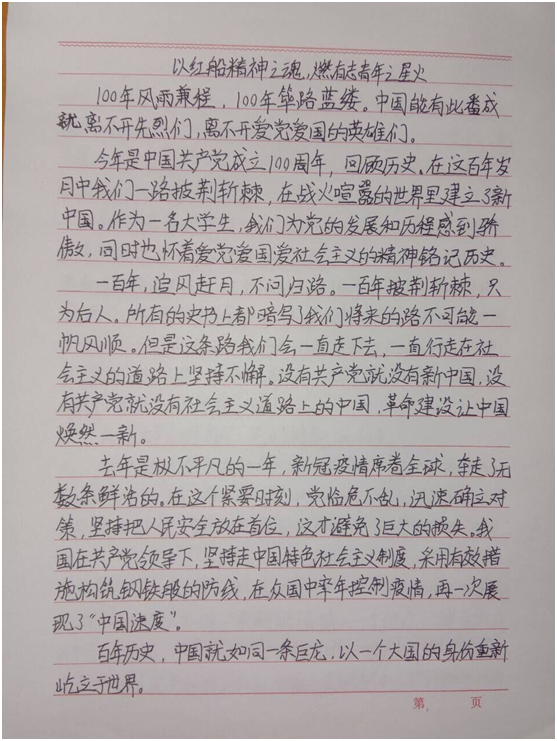 以红船精神之魂，燃有志青年之星火
100年风雨兼程，100年筚路蓝缕。中国能有此番成
就离不开先烈们，离不开爱党爱国的英雄们。
今年是中国共产党成立100周年，回顾历史，在这百年岁
月中我们一路披荆斩棘，在战火喧嚣的世界里建立了新
中国。作为一名大学生，我们为党的发展和历程感到骄
傲，同时也怀着爱党爱国爱社会主义的精神铭记历史。
一百年，追风赶月，不问归路。一百年披荆斩棘，只
为后人。所有的史书上都暗写了我们将来的路不可能一
帆风顺。但是这条路我们会一直走下去，一直行走在社
会主义的道路上坚持不懈。没有共产党就没有新中国，没
有共产党就没有社会主义道路上的中国，革命建设让中国
焕然一新。
去年是极不平凡的一年，新冠疫情席卷全球，牵走了无
数条鲜活的。在这个紧要时刻，党临危不乱，迅速确立对
策，坚持把人民安全放在首位，这才避免了巨大的损失。我
国在共产党领导下，坚持走中国特色社会主义制度，采用有效措
施构筑钢铁般的防线，在众国中率年控制疫情，再一次展
现了“中国速度”。
百年历史，中国就如同一条巨龙，以一个大国的身份重新
屹立于世界。
第 页